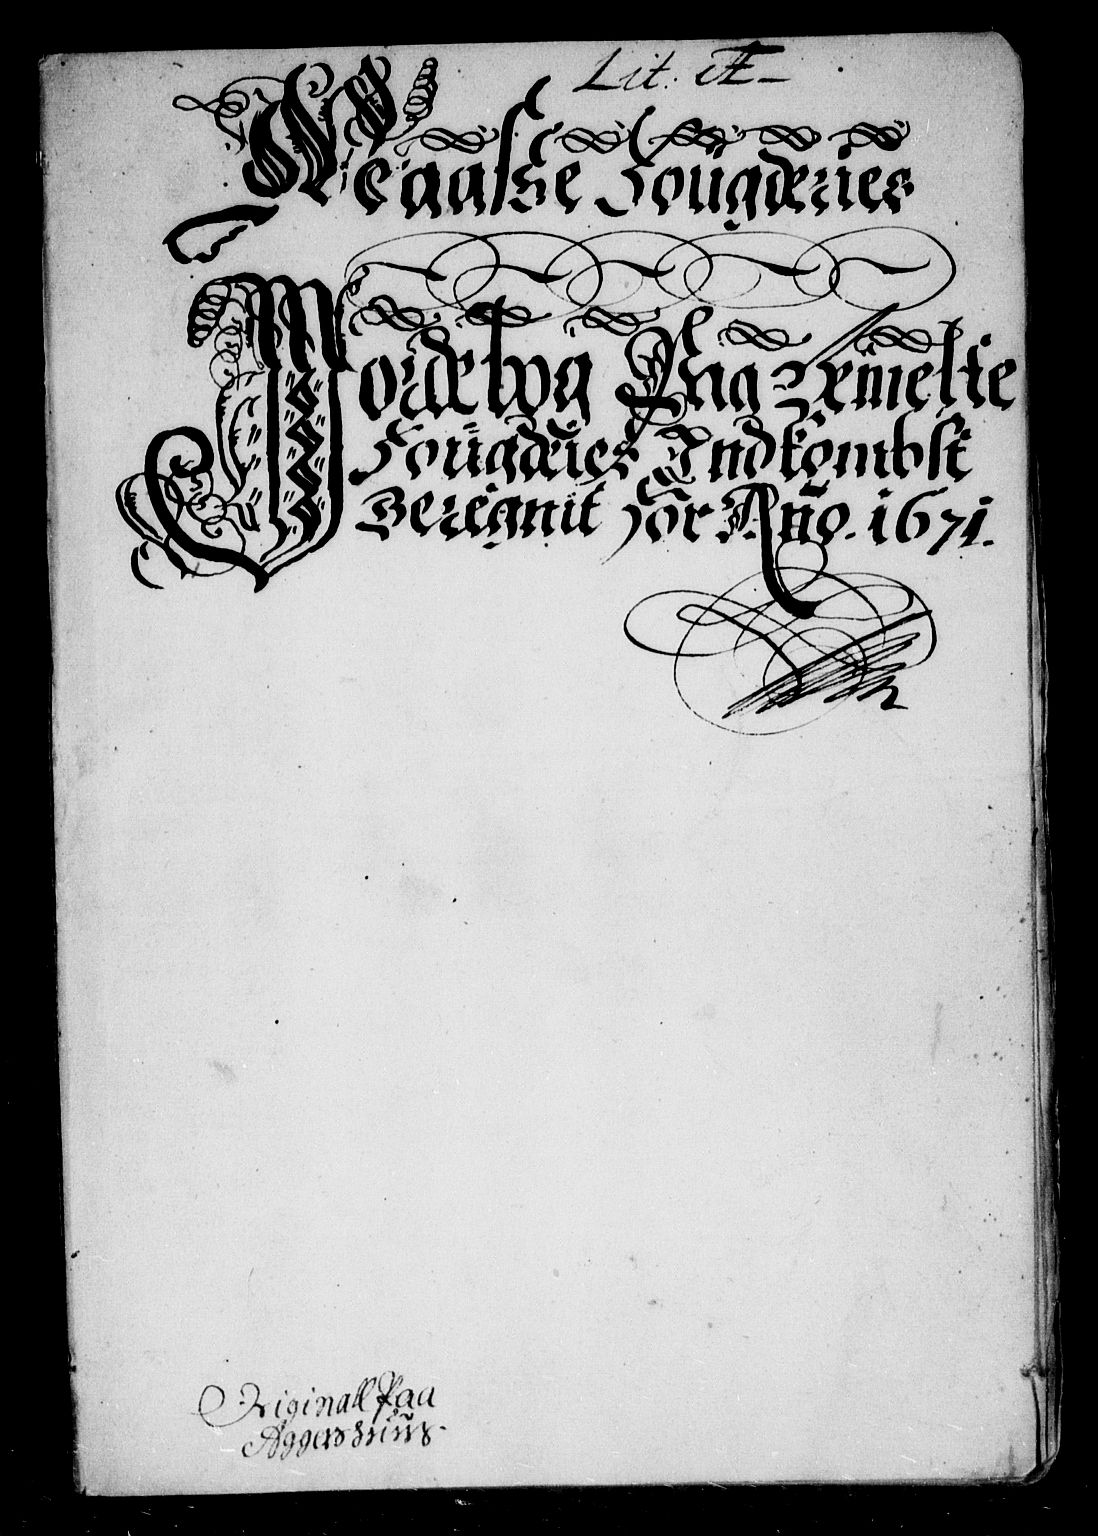 Lit. Æ
Fougderies
Jordebog Aug Bemelte
Fougderies Indkombst
Beregnit For Año. 1671.
Original Paa
Aggershuus.